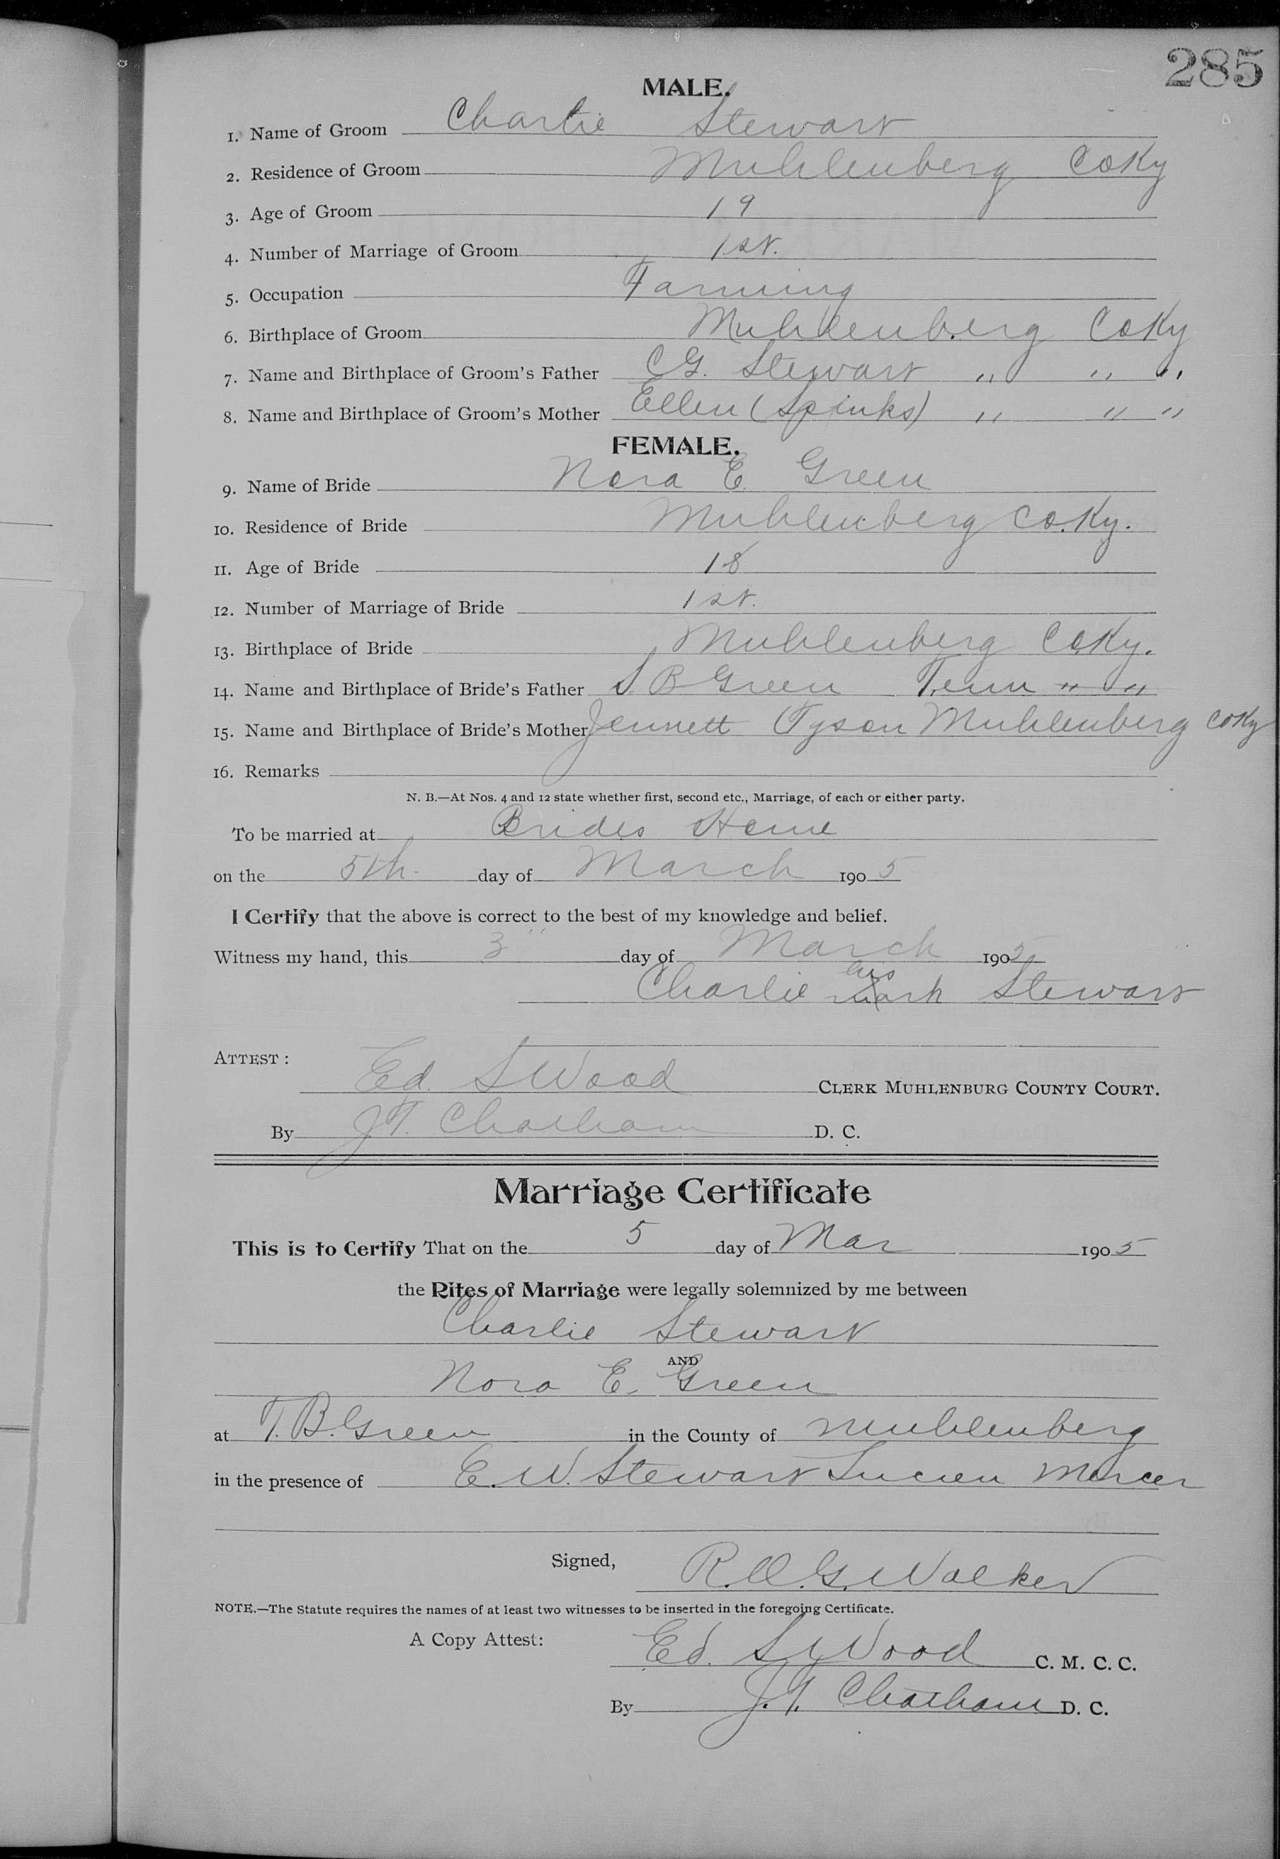 285
MALE.
1. Name of Groom Charlie Stewart
2. Residence of Groom Muhlenberg Co Ky
3. Age of Groom 19
4. Number of Marriage of Groom 1st.
5. Occupation Farming
6. Birthplace of Groom Muhlenberg Co Ky
7. Name and Birthplace of Groom's Father C G. Stewart " " "
8. Name and Birthplace of Groom's Mother Ellen (Spinks) " " "
FEMALE.
9. Name of Bride Nora E Green
10. Residence of Bride Muhlenberg Co. Ky.
11. Age of Bride 18
12. Number of Marriage of Bride 1st.
13. Birthplace of Bride Muhlenberg Co Ky.
14. Name and Birthplace of Bride's Father S B Green Tenn " "
15. Name and Birthplace of Bride's Mother Jennett (Tyson Muhlenberg Co Ky
16. Remarks
N. B.—At Nos. 4 and 12 state whether first, second etc., Marriage, of each or either party.
To be married at Brides Home
on the 5th. day of March 1905
I Certify that the above is correct to the best of my knowledge and belief.
Witness my hand, this 3" day of March 1905
Charlie his X mark Stewart
ATTEST: Ed. S Wood CLERK MUHLENBURG COUNTY COURT.
By J T. Chatham D. C.
Marriage Certificate
This is to Certify That on the 5 day of Mar 1905
the Rites of Marriage were legally solemnized by me between
Charlie Stewart
AND
Nora E. Green
at T. B. Green in the County of Muhlenberg
in the presence of E. W. Stewart Lucien Mercer
Signed, R. O. G. Walker
NOTE.—The Statute requires the names of at least two witnesses to be inserted in the foregoing Certificate.
A Copy Attest: Ed. S Wood C. M. C. C.
By J. T. Chatham D. C.